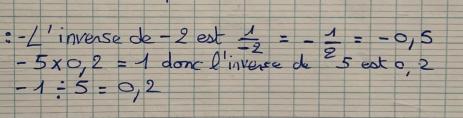 : - L'inverse de -2 est 1/-2 = - 1/2 = -0,5
- 5 x 0,2 = 1 donc l'inverse de 5 est 0,2
- 1 ÷ 5 = 0,2